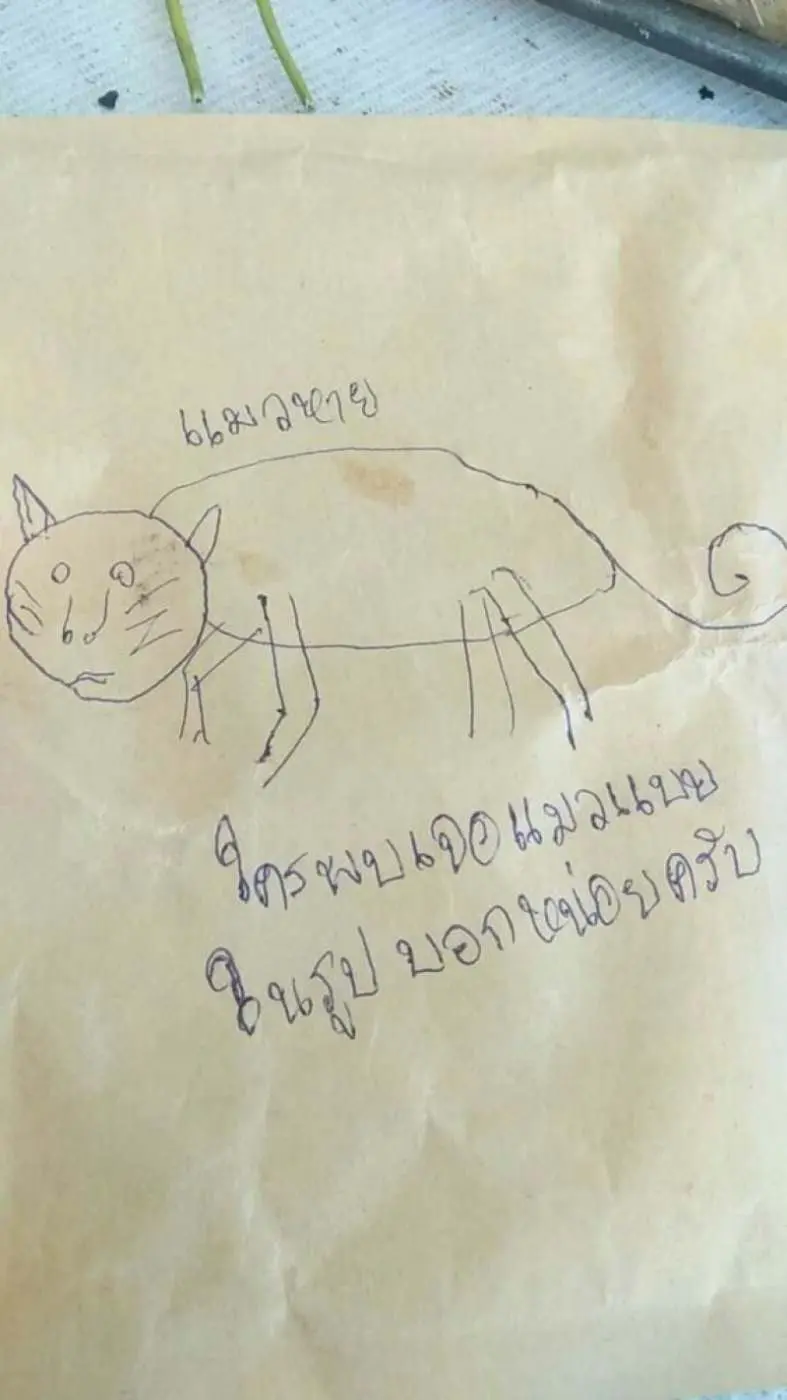 แมวหาย
ใครพบเจอแมวแบบ
ในรูป บอกหน่อยครับ